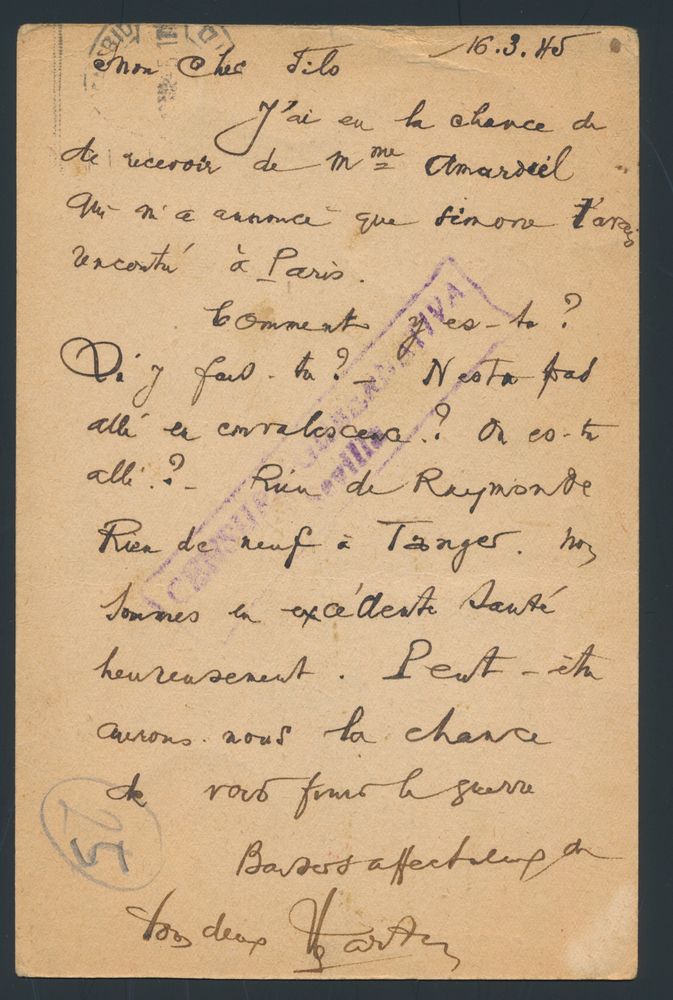 16.3.45
Mon Cher Fils
J'ai eu la chance de
de recevoir de Mme Amardeil
qui m'a annoncé que Simone t'avais
rencontré à Paris.
Comment y es-tu ?
fais-tu ? - N'estu pas
allé en convalescence.? Ou es-tu
allé.? - Rien de Raymonde
Rien de neuf à Tanger. Nous
sommes en excédente santé
heureusement. Peut-être
aurons nous la chance
de voir finir la guerre
Baisers affectueux de
tous deux
CENSURA GUBERNATIVA
Sevilla
25